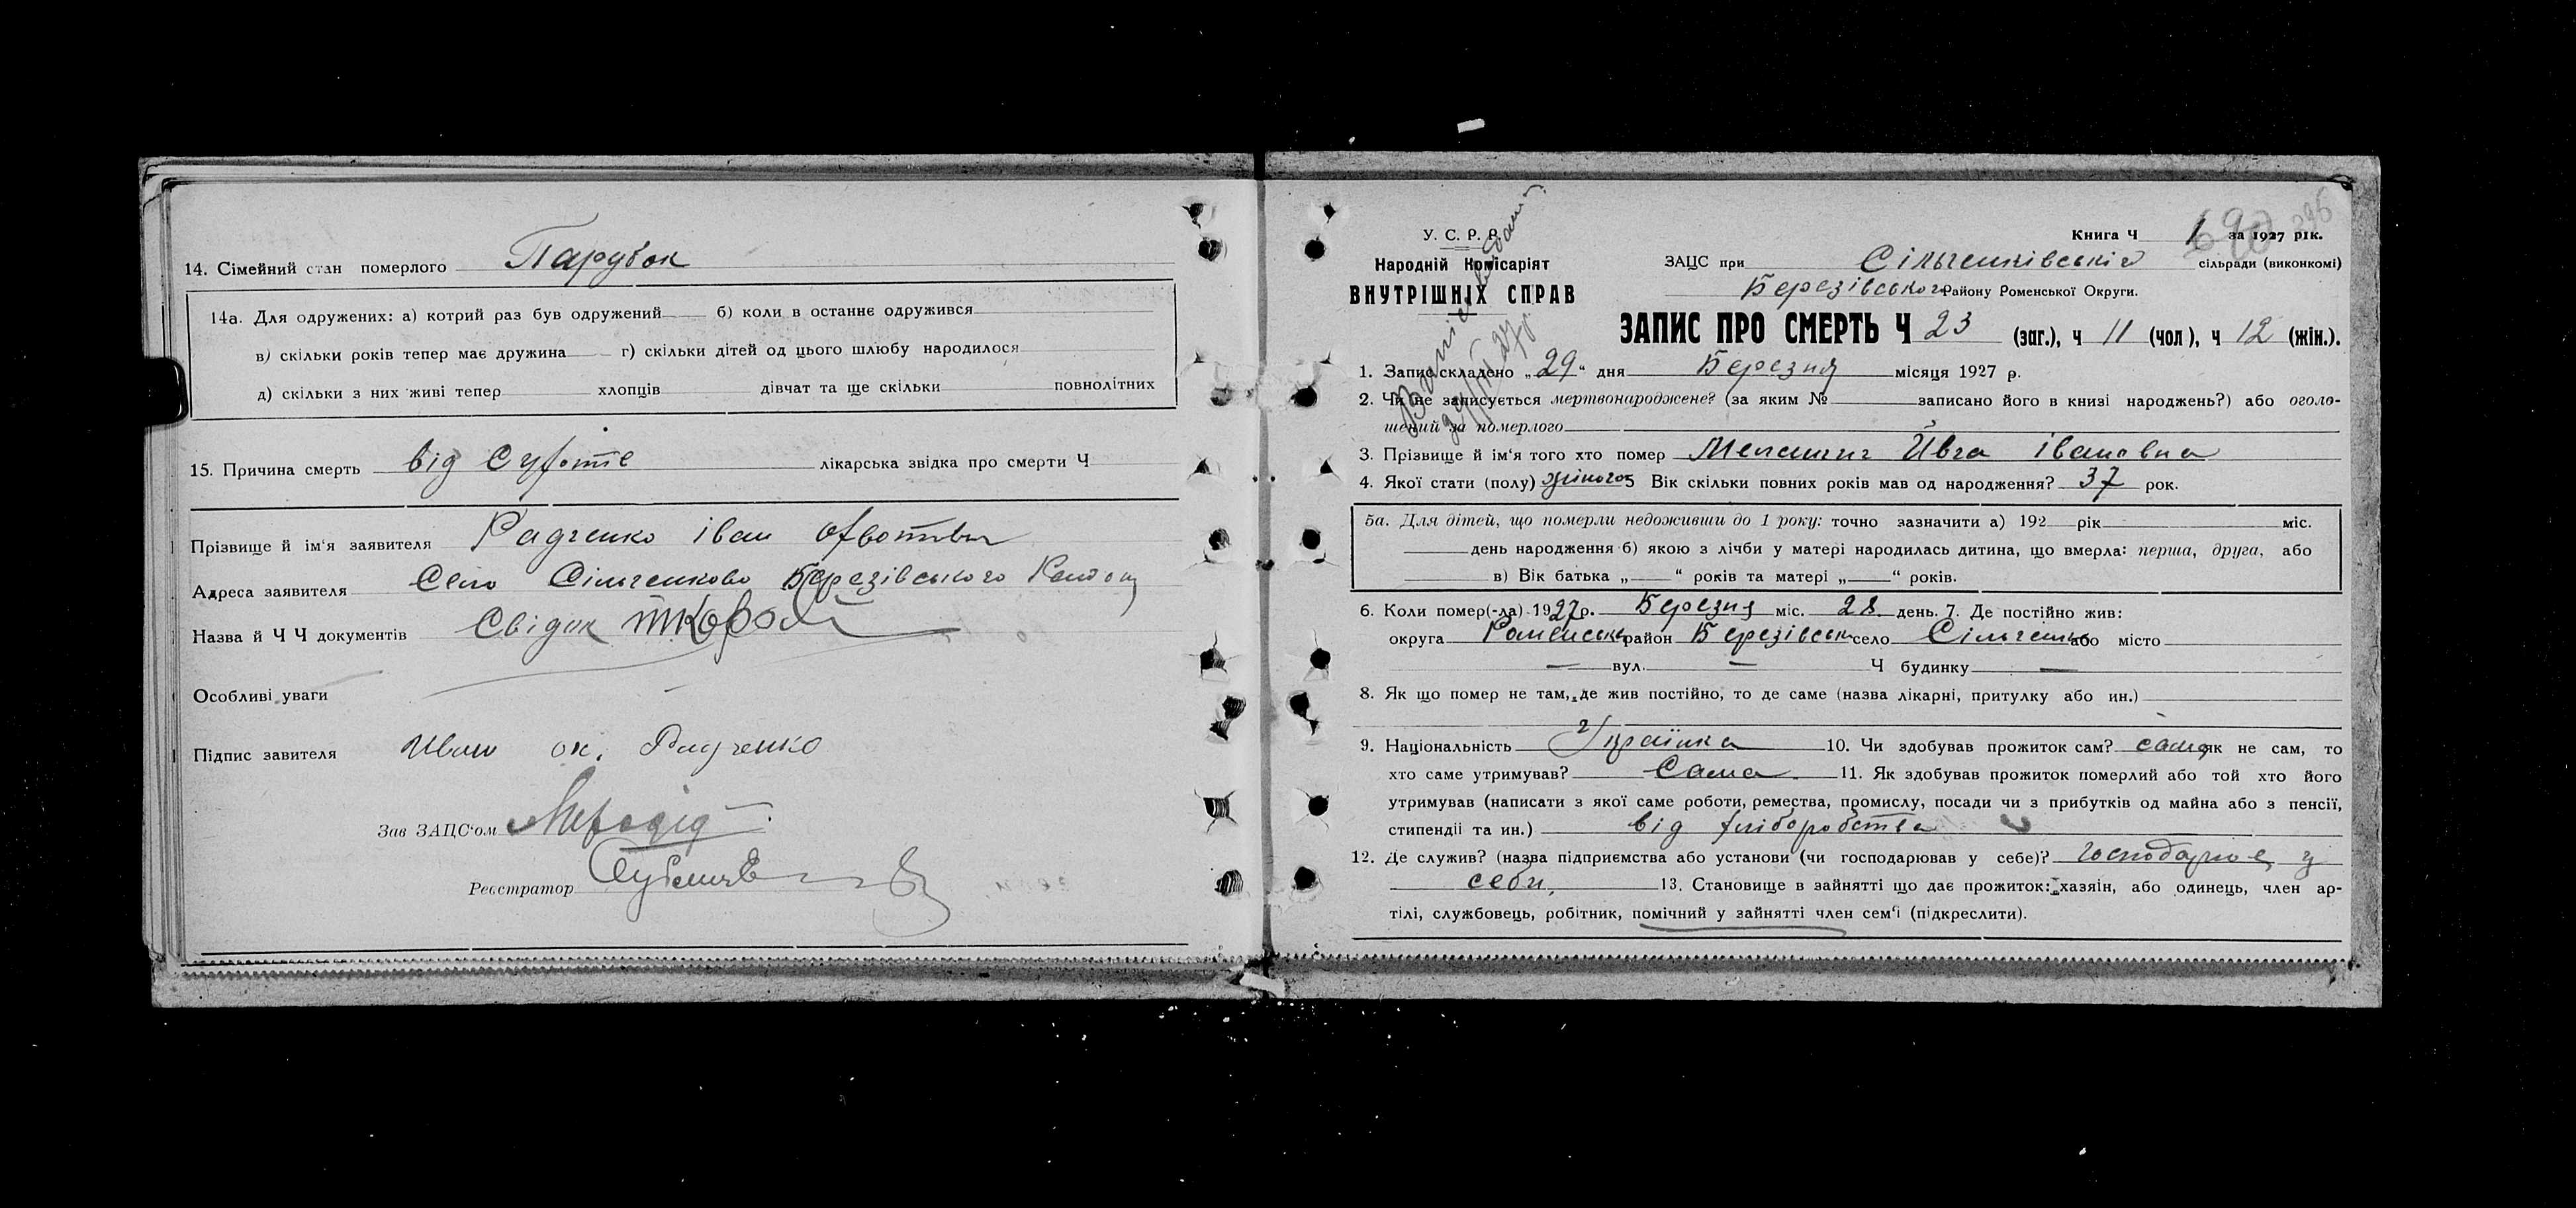 14. Сімейний стан померлого Парубок
14а. Для одружених: а) котрий раз був одружений б) коли в останнє одружився
в) скільки років тепер має дружина г) скільки дітей од цього шлюбу народилося
д) скільки з них живі тепер хлопців дівчат та ще скільки повнолітних
15. Причина смерть від Сухоти лікарська звідка про смерти Ч
Прізвище й ім'я заявителя Радченко Іван
Адреса заявителя Село Сільченково Березівського Району
Назва й Ч Ч документів Свідок
Особливі уваги
Підпис завителя Иван Радченко
Зав ЗАЦС'ом
Реєстратор
У. С. Р. Р.
Народній Комісаріят
ВНУТРІШНІХ СПРАВ
Книга Ч 1 за 1927 рік.
ЗАЦС при Сільченківській сільради (виконкомі)
Березівського Району Роменської Округи.
ЗАПИС ПРО СМЕРТЬ Ч 23 (заг.), ч 11 (чол), ч 12 (жін.).
1. Запис складено „29“ дня Березня місяця 1927 р.
2. Чи не записується мертвонароджене? (за яким № записано його в книзі народжень?) або оголо-
шений за померлого
3. Прізвище й ім'я того хто помер Йвга Івановна
4. Якої стати (полу) жіночої 5 Вік скільки повних років мав од народження? 37 рок.
5а. Для дітей, що померли недоживши до 1 року: точно зазначити а) 192 рік міс.
день народження б) якою з лічби у матері народилась дитина, що вмерла: перша, друга, або
в) Вік батька „ “ років та матері „ “ років.
6. Коли помер(-ла) 1927р. Березня міс. 28 день. 7. Де постійно жив:
округа Роменськ район Березівськ село Сільченко або місто
— вул. — Ч будинку —
8. Як що помер не там, де жив постійно, то де саме (назва лікарні, притулку або ин.)
9. Національність Українка 10. Чи здобував прожиток сам? сама як не сам, то
хто саме утримував? Сама 11. Як здобував прожиток померлий або той хто його
утримував (написати з якої саме роботи, ремества, промислу, посади чи з прибутків од майна або з пенсії,
стипендії та ин.) від хліборобства
12. Де служив? (назва підприємства або установи (чи господарював у себе)? господарює у
себи, 13. Становище в зайнятті що дає прожиток: хазяїн, або одинець, член ар-
тілі, службовець, робітник, помічний у зайнятті член сем'ї (підкреслити).